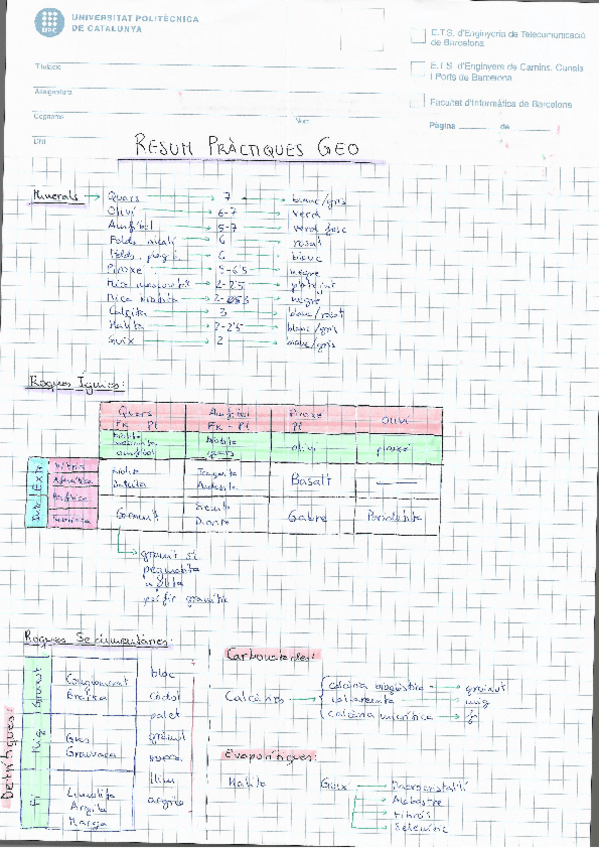 UNIVERSITAT POLITÈCNICA
DE CATALUNYA
UPC
E.T.S. d'Enginyeria de Telecomunicació
de Barcelona
E.T.S. d'Enginyers de Camins, Canals
i Ports de Barcelona
Facultat d'Informàtica de Barcelona
Titulació
Assignatura
Cognoms
Nom
DNI
Pàgina de
RESUM PRÀCTIQUES GEO
Minerals
Quars 7 blanc/gris
Olivi 6-7 verd
Amfíbol 5-7 verd fosc
Felds. alcalí 6 rosat
Felds. plag. 6 blanc
Piroxè 5-6'5 negre
Mica 2-2'5
Mica biotita negre
Calcita 3 blanc/rosat
Halita 2-2'5 blanc/gris
Guix 2 blanc/gris
Roques Ígnies:
Quars Amfíbol Piroxè Olivi
FK Pl FK - Pl Pl
Biotita
amfíbol olivi piroxè
Extr
Basalt
Dacita Andesita
Granit Gabre Peridotita
Diorita
granit si
pegmatita
aplita
pòrfir granític
Roques Sedimentàries:
Detrítiques:
Gruixut
Conglomerat
Bretxa
bloc
còdol
palet
Mig
Gres
Grauvaca
grànul
sorra
Fi
Limolita
Argila
Marga
llim
argila
Carbonatades:
Calcàries
calcària gruixut
mig
calcària micrítica fi
Evaporítiques:
Halita Guix
Alabastre
Fibrós
Selenític